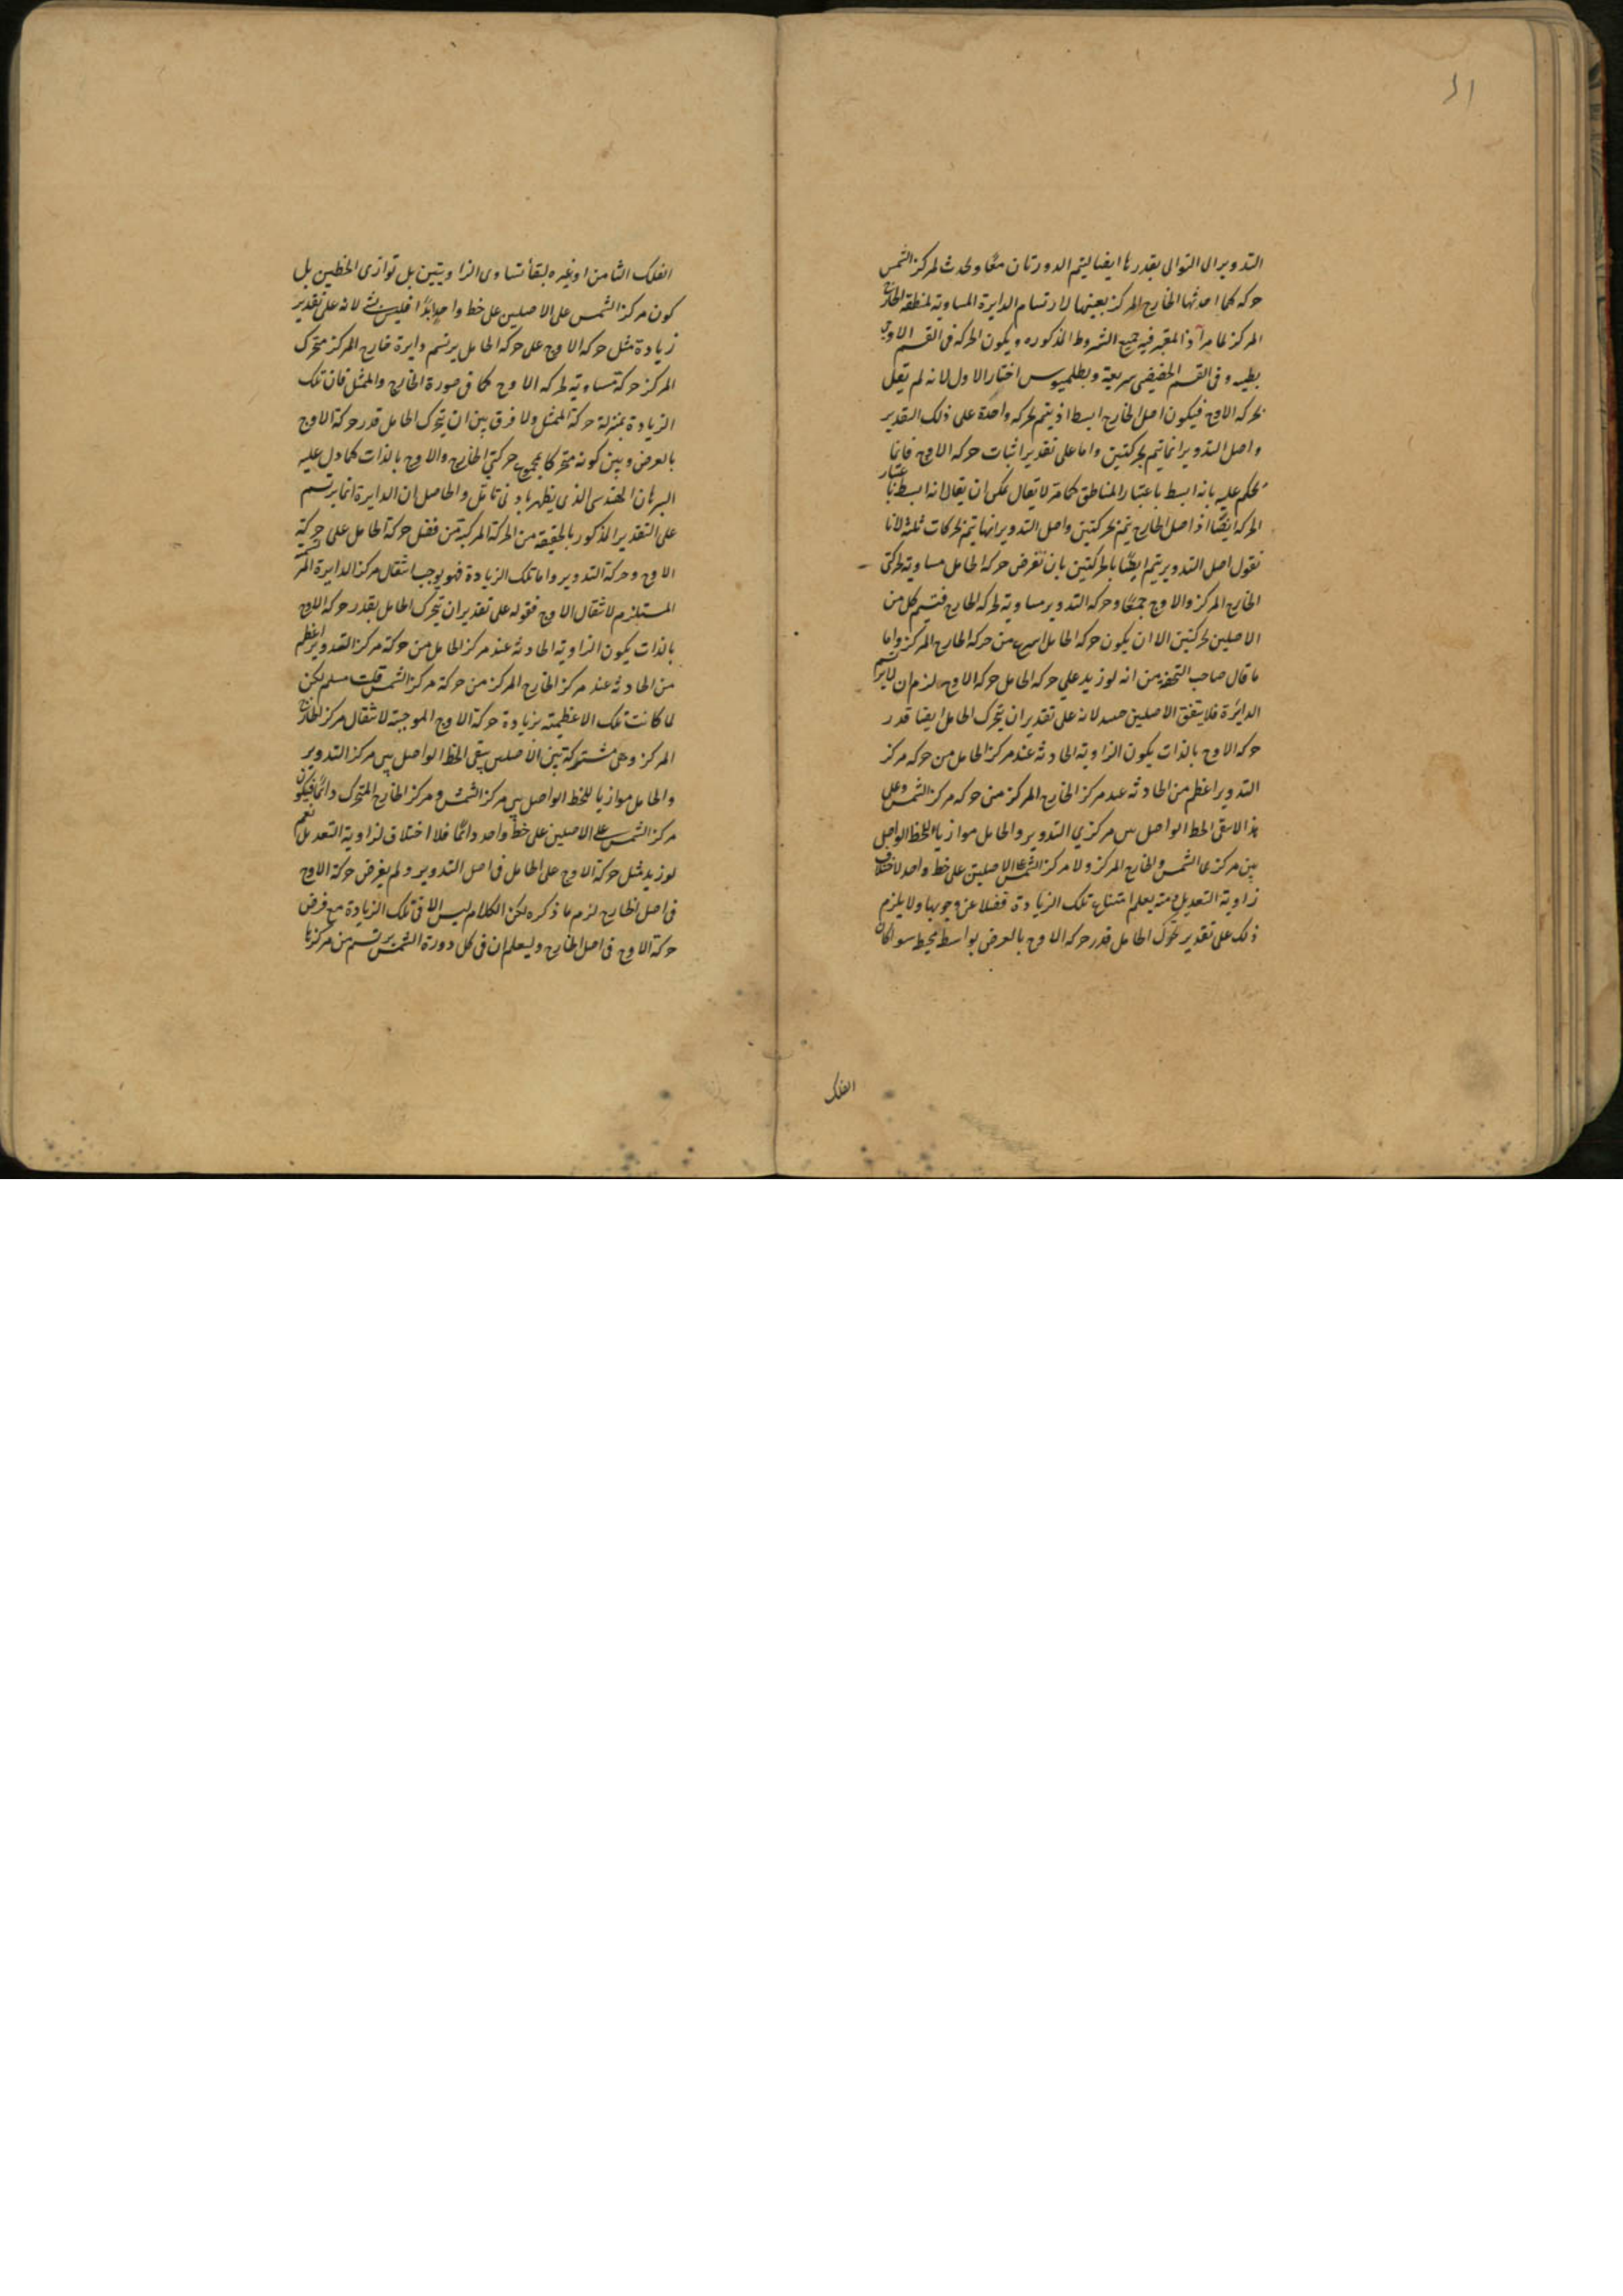 ٤١
التدوير الى التوالى بقدرها ايضا ليتم الدورتان معًا ويحدث لمركز الشمس
حركه كما احدثها الخارج المركز بعينها لارتسام الدايرة المساوية لمنطقه الخارج
المركز لما مرّ اذ المعتبر فيه جميع الشروط المذكوره ويكون الحركه فى القسم الاوجى
بطيه وفى القسم الحضيضى سريعة وبطلميوس اختار الاول لانه لم يقل
بحركه الاوج فيكون اصل الخارج ابسط اذ يتم بحركه واحدة على ذلك التقدير
واصل التدوير انما يتم بحركتين واما على تقدير اثبات حركه الاوج فانما
يحكم عليه بانه ابسط باعتبار المناطق كما مرّ لا يقال يمكن ان يقال انه ابسط باعتبار
الحركه ايضًا اذ اصل الخارج يتم بحركتين واصل التدوير انما يتم بحركات ثلثة لانا
نقول اصل التدوير يتم ايضًا بالحركتين بان نفرض حركه الحامل مساوية لحركتى
الخارج المركز والاوج جمعًا وحركه التدوير مساوية لحركه الخارج فيتم كل من
الاصلين بحركتين الا ان يكون حركه الحامل اسرع من حركه الخارج المركز واما
ما قال صاحب التحفه من انه لو زيد على حركه الحامل حركه الاوج لزم ان لا يرتسم
الدائرة فلا يتفق الاصلين حينئذ لانه على تقدير ان يتحرك الحامل ايضا قدر
حركه الاوج بالذات يكون الزاوية الحادثه عند مركز الحامل من حركه مركز
التدوير اعظم من الحادثه عند مركز الخارج المركز من حركه مركز الشمس وعلى
هذا لا يبقى الخط الواصل بين مركزي التدوير والحامل موازيا للخط الواصل
بين مركزى الشمس والخارج المركز ولا مركز الشمس على الاصلين على خط واحد لاختلاف
زاوية التعديل ومنه يعلم امتناع تلك الزيادة فضلا عن وجوبها ولا يلزم
ذلك على تقدير تحرّك الحامل قدر حركه الاوج بالعرض بواسطة محيط سوا كان
الفلك
الفلك الثامن او غيره لبقأ تساوى الزاويتين بل توازى الخطين بل
كون مركز الشمس على الاصلين على خط واحد ابدًا فليس بشئ لانه على تقدير
زيادة مثل حركه الاوج على حركه الحامل يرتسم دايرة خارج المركز متحرك
المركز حركة مساوية لحركه الاوج كما فى صورة الخارج والممثل فان تلك
الزيادة بمنزلة حركة الممثل ولا فرق بين ان يتحرك الحامل قدر حركة الاوج
بالعرض وبين كونه متحركا بمجموع حركتي الخارج والاوج بالذات كما دل عليه
البرهان الهندسى الذى يظهر بادنى تامّل والحاصل ان الدايرة انما يرتسم
على التقدير المذكور بالحقيقه من الحركة المركبة من فضل حركة الحامل على حركة
الاوج وحركة التدوير واما تلك الزيادة فهو يوجب انتقال مركز الدايرة المرتسمة
المستلزم لانتقال الاوج فقوله على تقدير ان يتحرك الحامل بقدر حركه الاوج
بالذات يكون الزاوية الحادثة عند مركز الحامل من حركة مركز التدوير اعظم
من الحادثة عند مركز الخارج المركز من حركة مركز الشمس قلت مسلم لكن
لما كانت تلك الاعظمية بزيادة حركة الاوج الموجبة لانتقال مركز الخارج
المركز وهى مشتركة بين الاصلين يبقى الخط الواصل بين مركز التدوير
والحامل موازيا للخط الواصل بين مركز الشمس ومركز الخارج المتحرك دائمًا فيكون
مركز الشمس على الاصلين على خط واحد دائمًا فلا اختلاف لزاوية التعديل نعم
لو زيد مثل حركة الاوج على الحامل فى اصل التدوير ولم يفرض حركة الاوج
فى اصل الخارج لزم ما ذكره لكن الكلام ليس الا فى تلك الزيادة مع فرض
حركة الاوج فى اصل الخارج وليعلم ان فى كل دورة الشمس يرتسم من مركزها